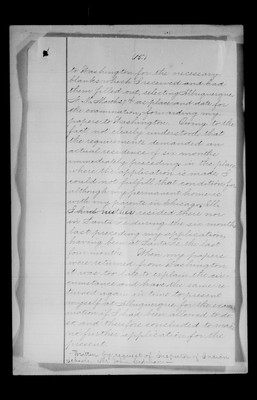 151
to Washington for the necessary
blanks which I received and had
them filled out, selecting Albuquerque
N. M. as place and date for
the examination, forwarding my
papers to Washington. Owing to the
fact not clearly understood, that
the requirements demanded an
actual residence of six months
immediately preceding in the place
where the application is made I
could not fulfill that condition, for
although my permanent home is
with my parents in Chicago, Ills.
I had neither resided there nor
in Santa Fe during the six months
last preceding my application
having been at Santa Fe the last
four months. When my papers
was returned from Washington
it was too late to explain the circumstance
and have the same returned
again in time to present
myself at Albuquerque for the examination
if I had been allowed to do
so and therefore concluded to make
no further application for the
present.
Written by request of